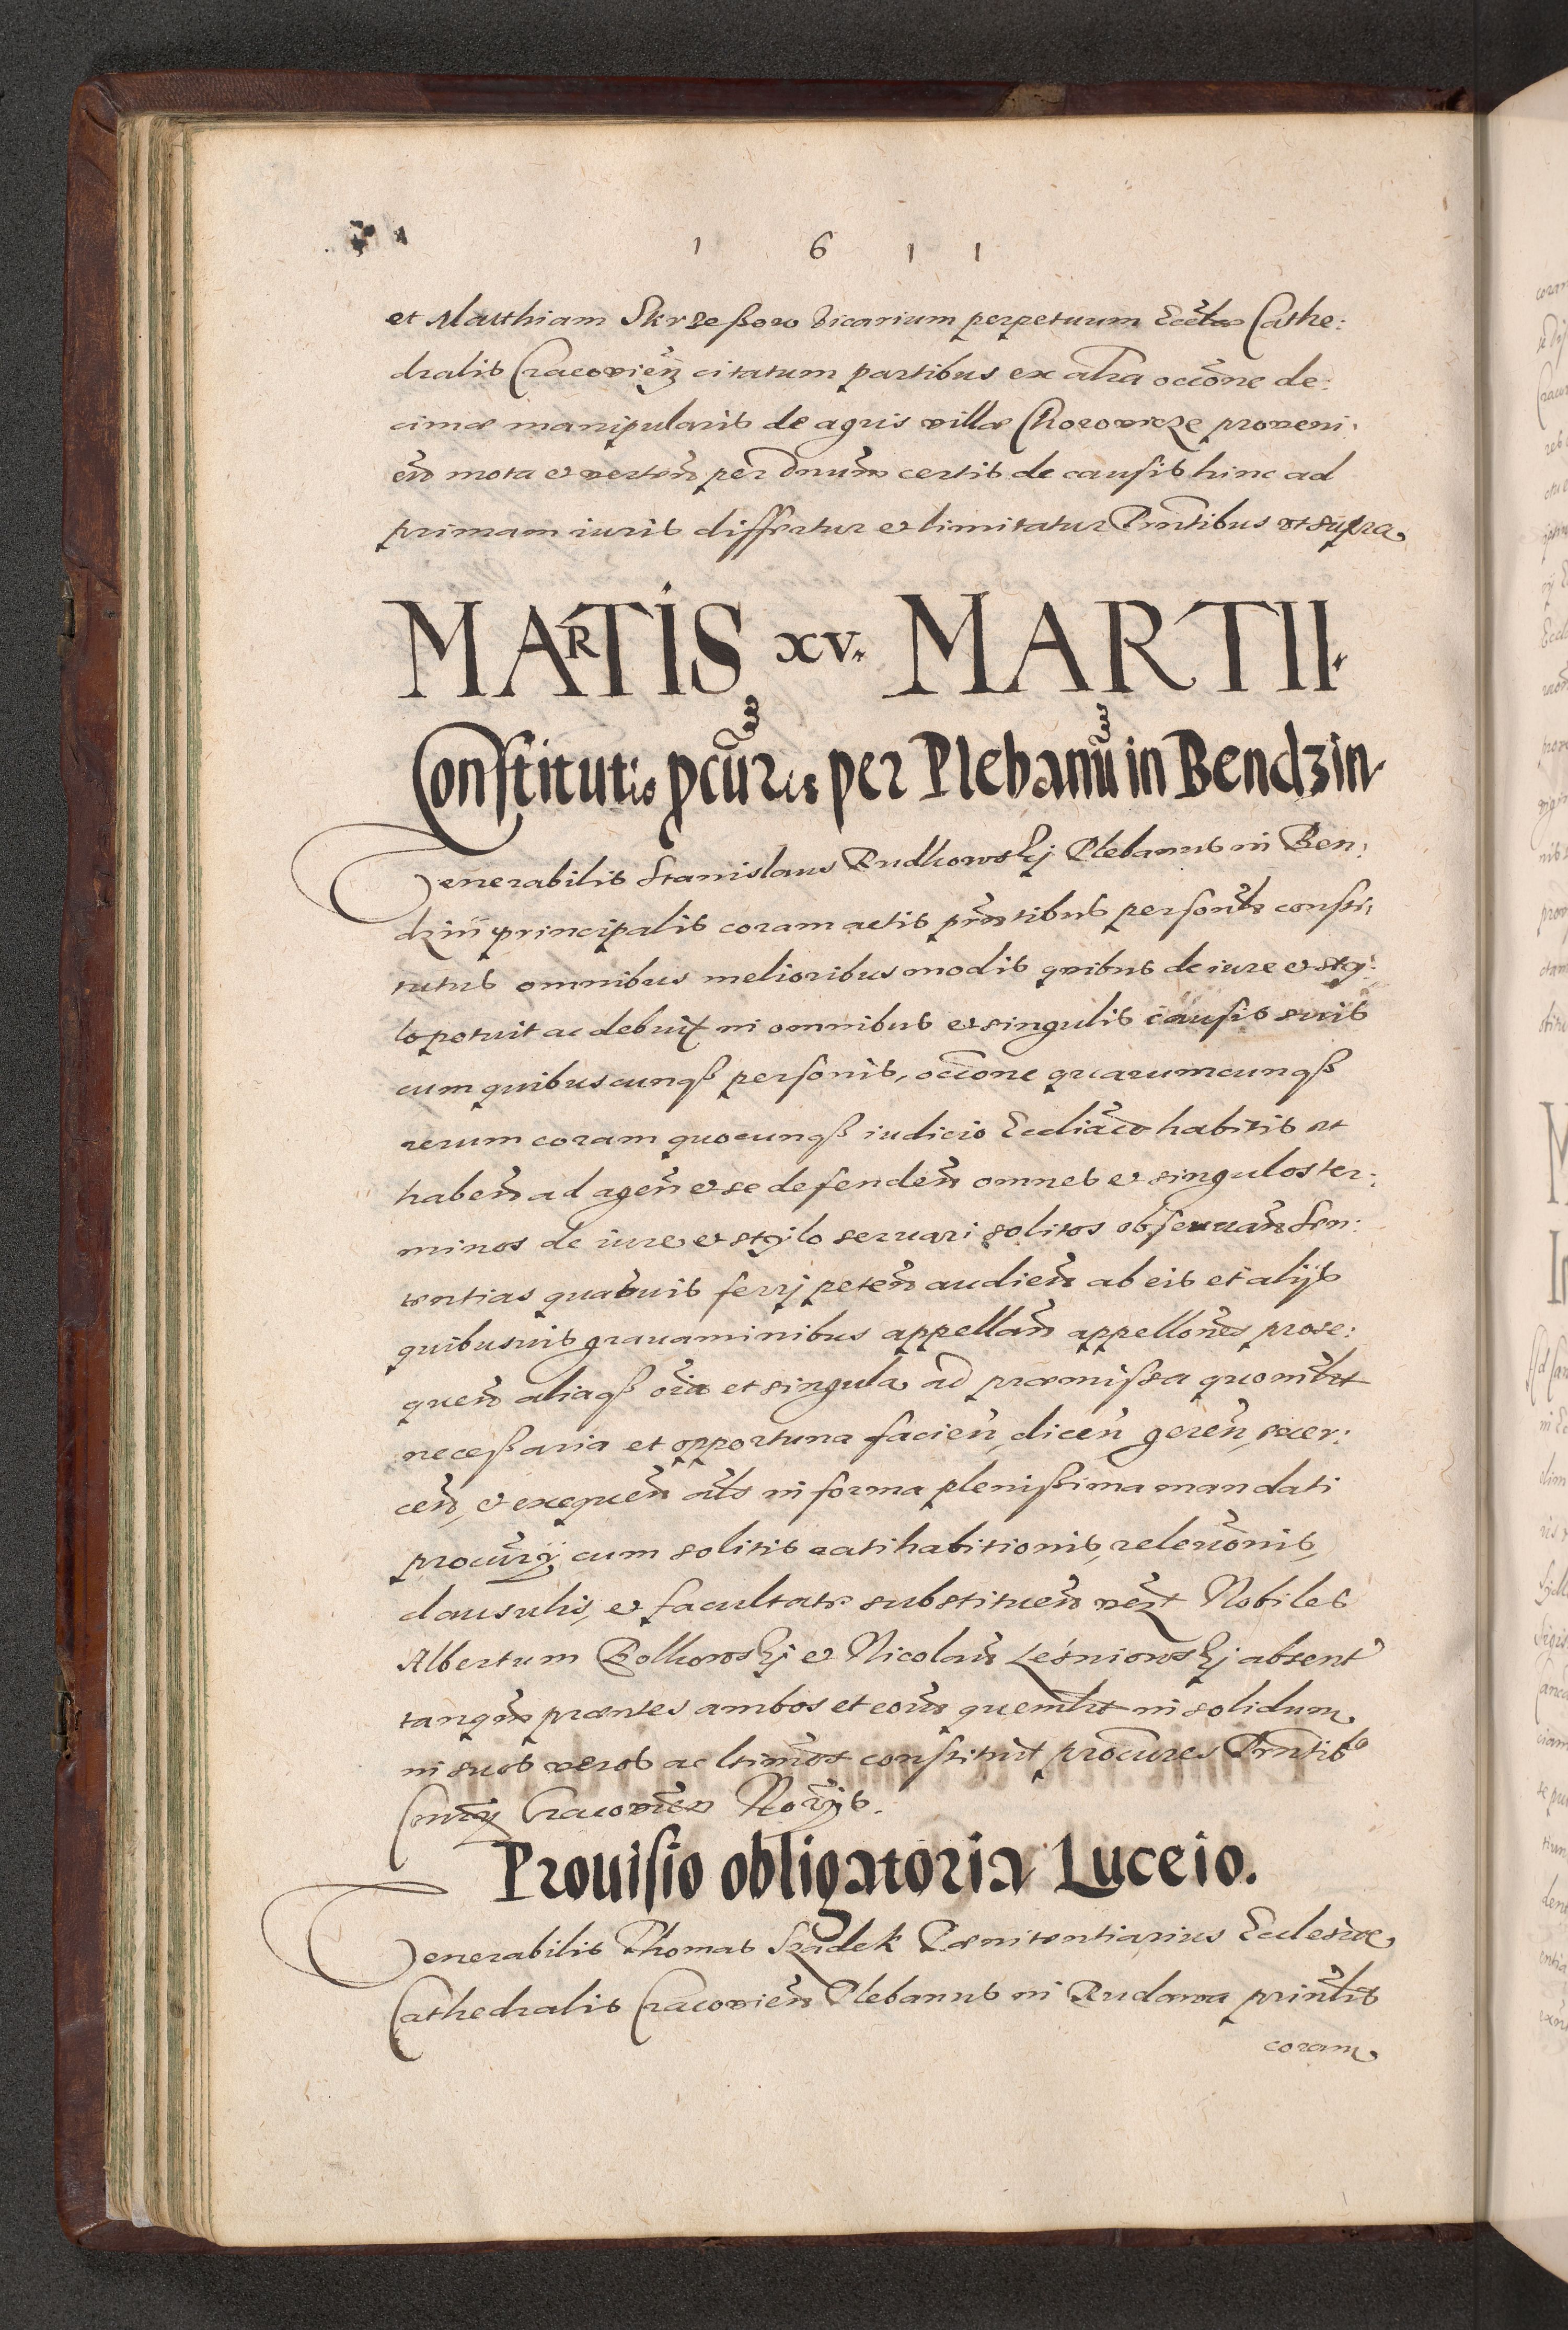 1 6 1 1
et Matthiam Skrzeßow Vicarium perpetuum Eccłae Cathe:
dralis Cracovień citatum partibus ex alra occōne de:
cimae manipularis de agris villae Chorowicze proveni:
eñ mota et verteñ per Dnum certis de causis hinc ad
primam iuris differtur et limitatur Pñtibus ut supra
MARTIS xv. MARTII.
Constitutio pcūris per Plebanū in Bendzin
Venerabilis Stanislaus Rudkowskj Plebanus in Ben:
dzin principalis coram actis pñtibus personłr consti:
tutus omnibus melioribus modis quibus de iure et sty:
lo potuit ac debuit in omnibus et singulis causis suis
cum quibuscunqß personis, occōne quarumcunqß
rerum coram quocunqß iudicio Eccliāco habitis et
habeñ ad ageñ et se defendeñ omnes et singulos ter:
minos de iure et stylo servari solitos observañ Sen:
tentias quasvis ferrj peteñ audieñ ab eis et alijs
quibusvis gravaminibus appellañ appellōnes prose:
queñ aliaqß oīa et singula ad praemissa quomłt
necessaria et opportuna facieñ, diceñ gereñ, exer:
ceñ, et exequeñ ałs in forma plenissima mandati
procūrij cum solitis ratihabitionis, relevōnis,
clausulis, et facultate substitueñ vezt Nobiles
Albertum Bolkowskj et Nicolaū Leśniowskj absent
tanqm praentes ambos et eorū quemłt in solidum
in suos veros ac ltīmos constituit procūres Pñtib
Coñrij Cracovień Norijs.
Provisio obligatoria Luceio.
Venerabilis Thomas Szadek Poenitentiarius Ecclesiae
Cathedralis Cracovień Plebanus in Rudawa prinłis
coram